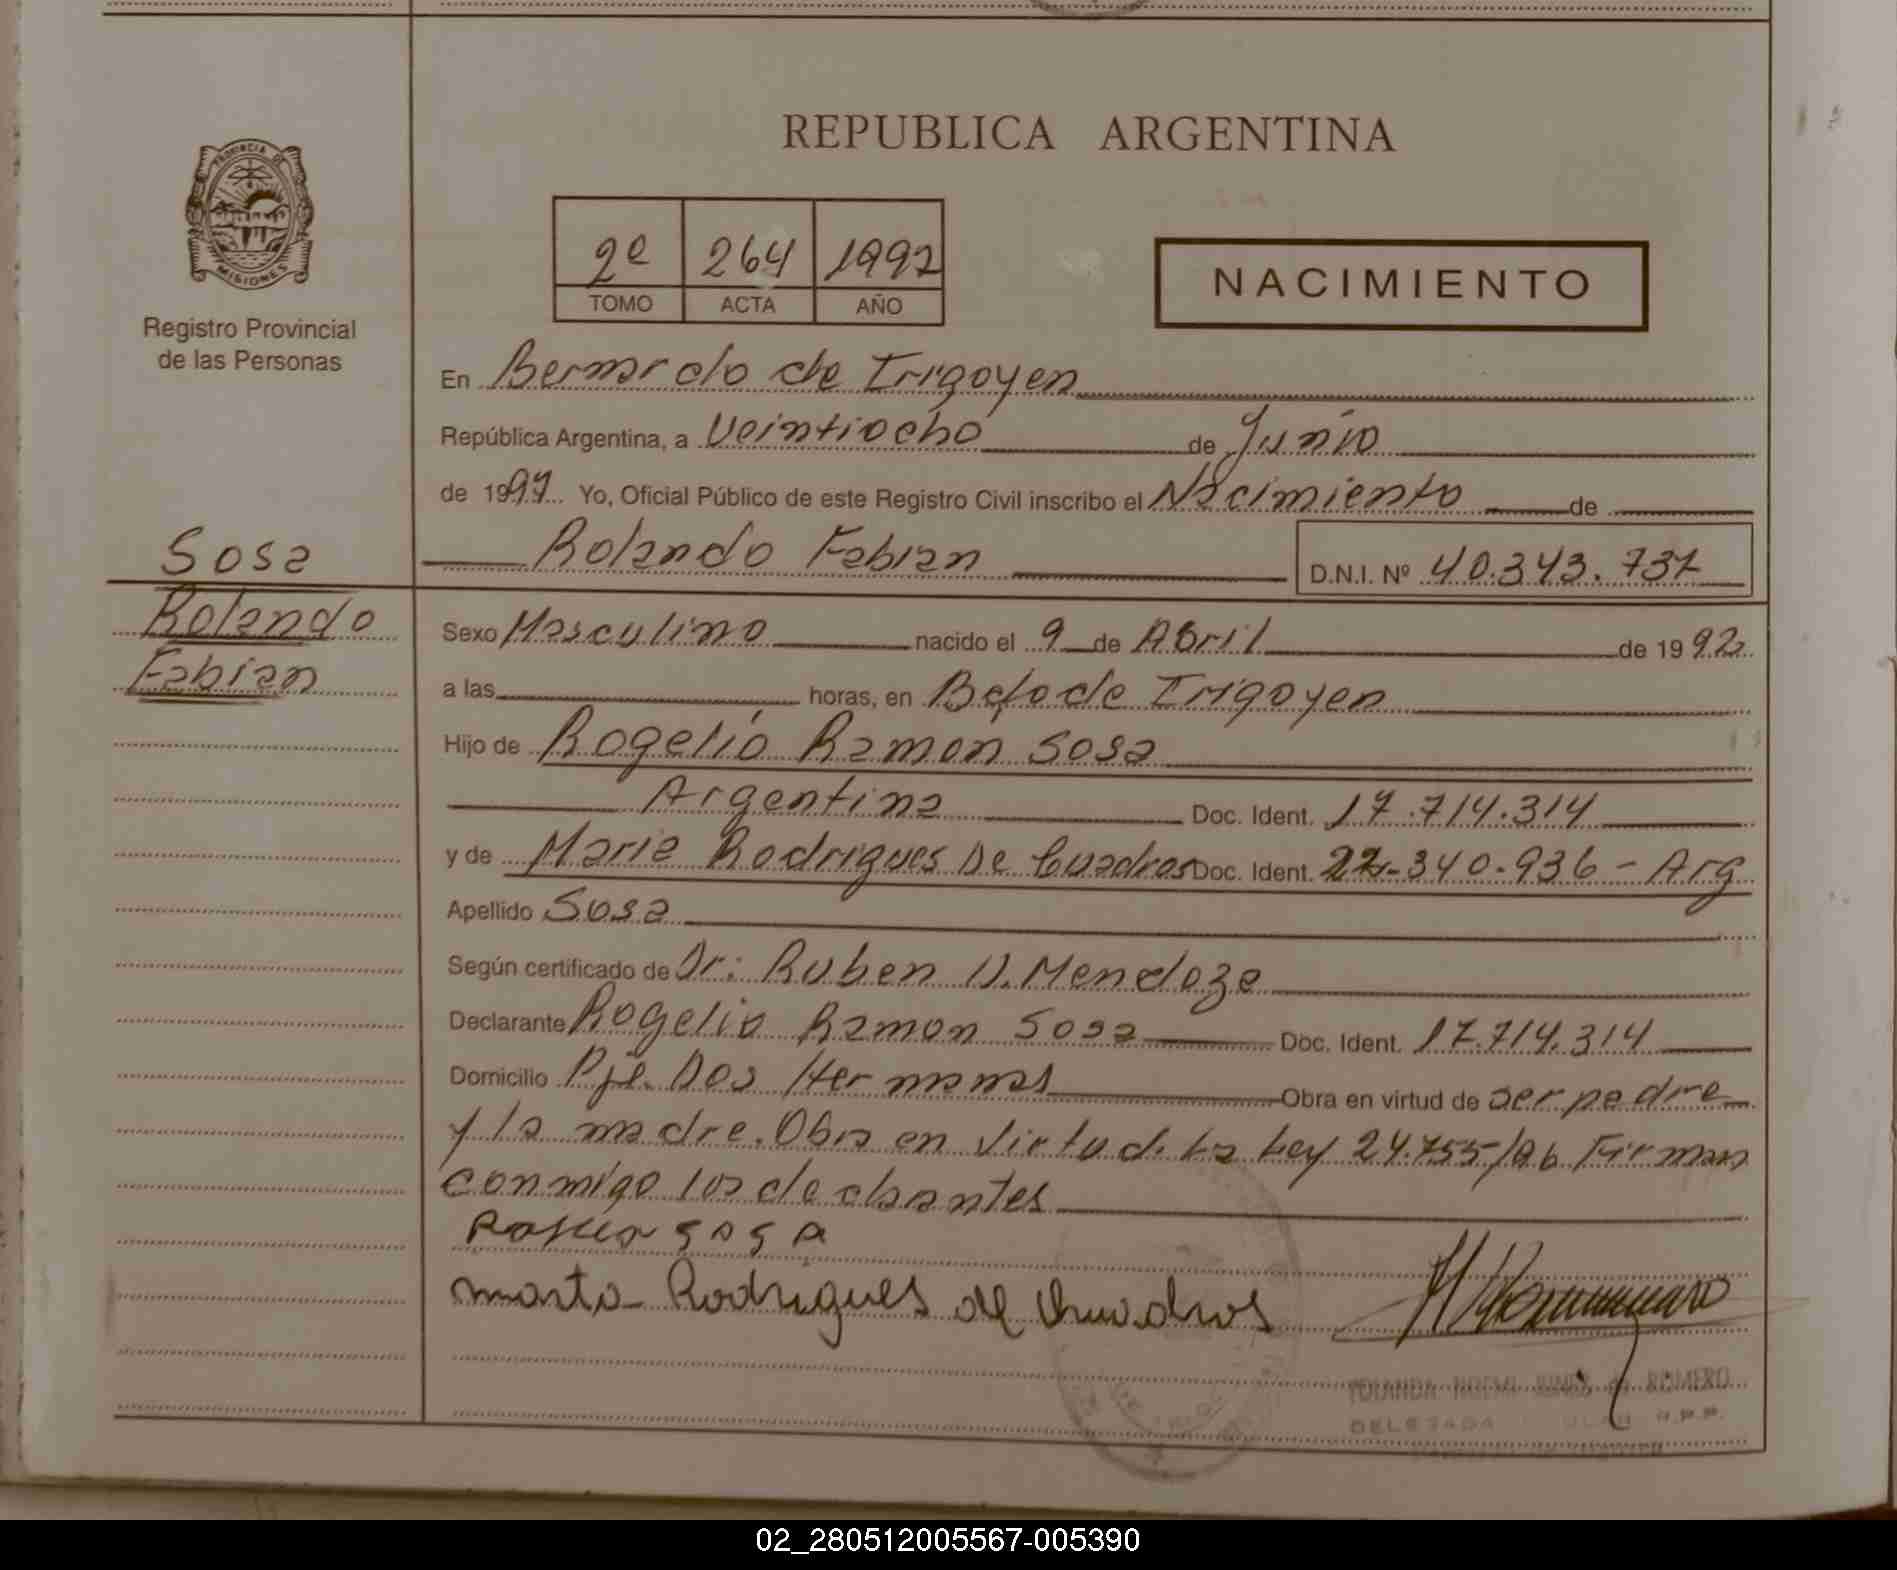 REPUBLICA ARGENTINA
PROVINCIA DE
MISIONES
Registro Provincial
de las Personas
2º 264 1997
TOMO ACTA AÑO
NACIMIENTO
En Bernardo de Irigoyen
República Argentina, a Veintiocho de Junio
de 1997. Yo, Oficial Público de este Registro Civil inscribo el Nacimiento de
Sosa
Rolando Fabian D.N.I. Nº 40.343.737
Rolando
Fabian
Sexo Masculino nacido el 9 de Abril de 1992
a las horas, en Bdo de Irigoyen
Hijo de Rogelio Ramon Sosa
Argentina Doc. Ident. 17.714.314
y de Maria Rodrigues De Cuadros Doc. Ident. 22.340.936 - Arg
Apellido Sosa
Según certificado de Dr: Ruben D. Mendoza
Declarante Rogelio Ramon Sosa Doc. Ident. 17.714.314
Domicilio Pje. Dos Hermanas Obra en virtud de ser padre
y la madre. Obra en Virtud. La Ley 24.755/96 Firman
conmigo los declarantes
sosa
marta Rodrigues de
YOLANDA NOEMI DE ROMERO
DELEGADA R.P.P.
02_280512005567-005390